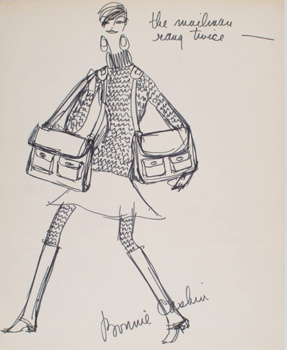 the mailman
rang twice —
Bonnie Cashin